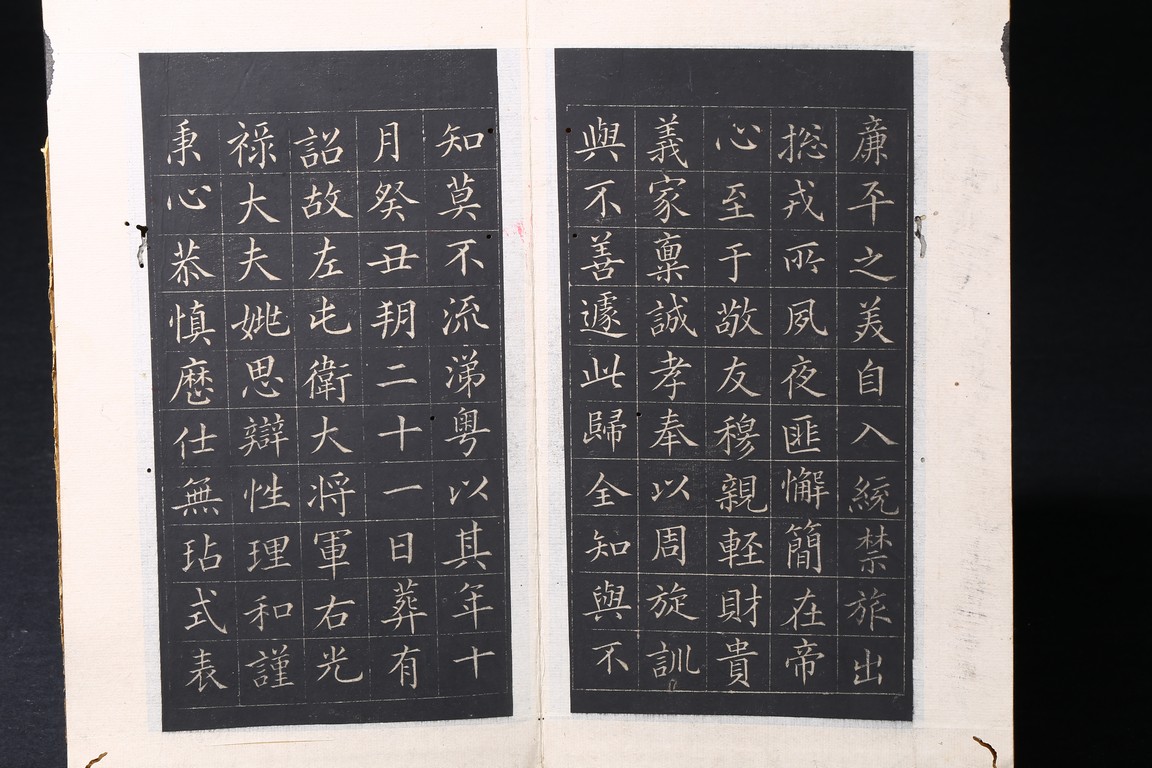 廉平之美自入統禁旅出
揔戎所夙夜匪懈簡在帝
心至于敬友穆親輕財貴
義家稟誠孝奉以周旋訓
與不善遽此歸全知與不
知莫不流涕粤以其年十
月癸丑朔二十一日葬有
詔故左屯衛大将軍右光
祿大夫姚思辯性理和謹
秉心恭慎歷仕無玷式表